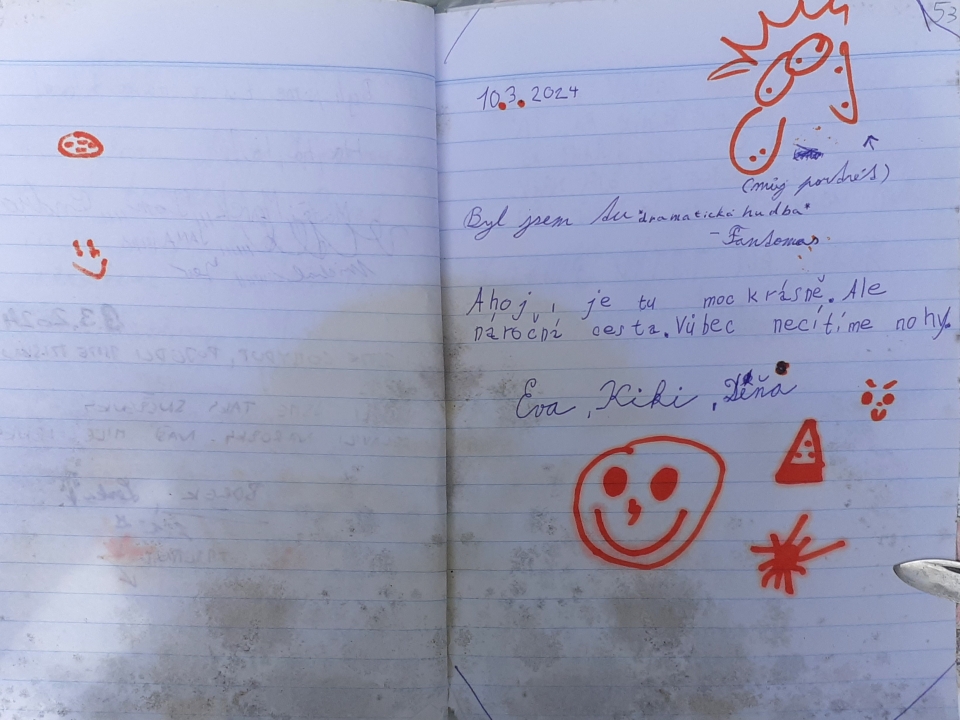 53
10.3.2024
(můj portrét)
Byl jsem tu *dramatická hudba*
- Fantomas
Ahoj, je tu moc krásně. Ale
náročná cesta. Vůbec necítíme nohy.
Eva, Kiki,